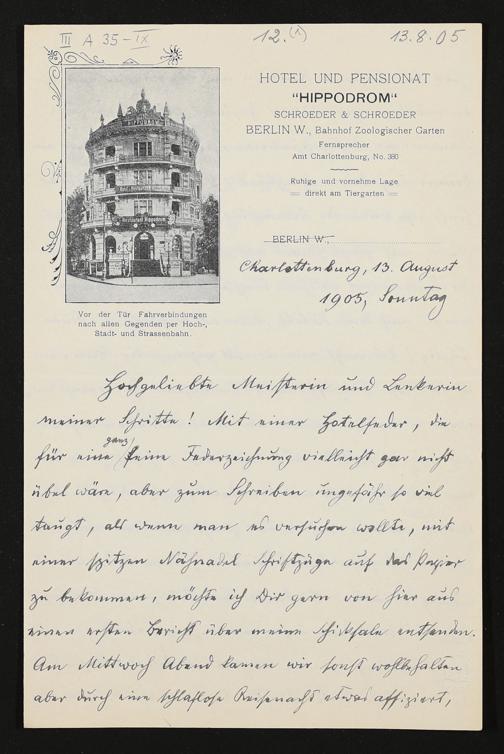 III A 35-IX
12. (1)
13.8.05
HOTEL UND PENSIONAT
"HIPPODROM"
SCHROEDER & SCHROEDER
BERLIN W., Bahnhof Zoologischer Garten
Fernsprecher
Amt Charlottenburg, No. 380
Ruhige und vornehme Lage
direkt am Tiergarten
BERLIN W.,
Charlottenburg, 13. August
1905, Sonntag
Vor der Tür Fahrverbindungen
nach allen Gegenden per Hoch-,
Stadt- und Strassenbahn.
Hochgeliebte Meisterin und Lenkerin
meiner Schritte! Mit einer Hotelfeder, die
für eine ganz feine Federzeichnung vielleicht gar nicht
übel wäre, aber zum Schreiben ungefähr so viel
taugt, als wenn man es versuchen wollte, mit
einer spitzen Nähnadel Schriftzüge auf das Papier
zu bekommen, möchte ich Dir gern von hier aus
einen ersten Bericht über meine Schicksale entsenden.
Am Mittwoch Abend kamen wir sonst wohlbehalten
aber durch eine schlaflose Reisenacht etwas affiziert,